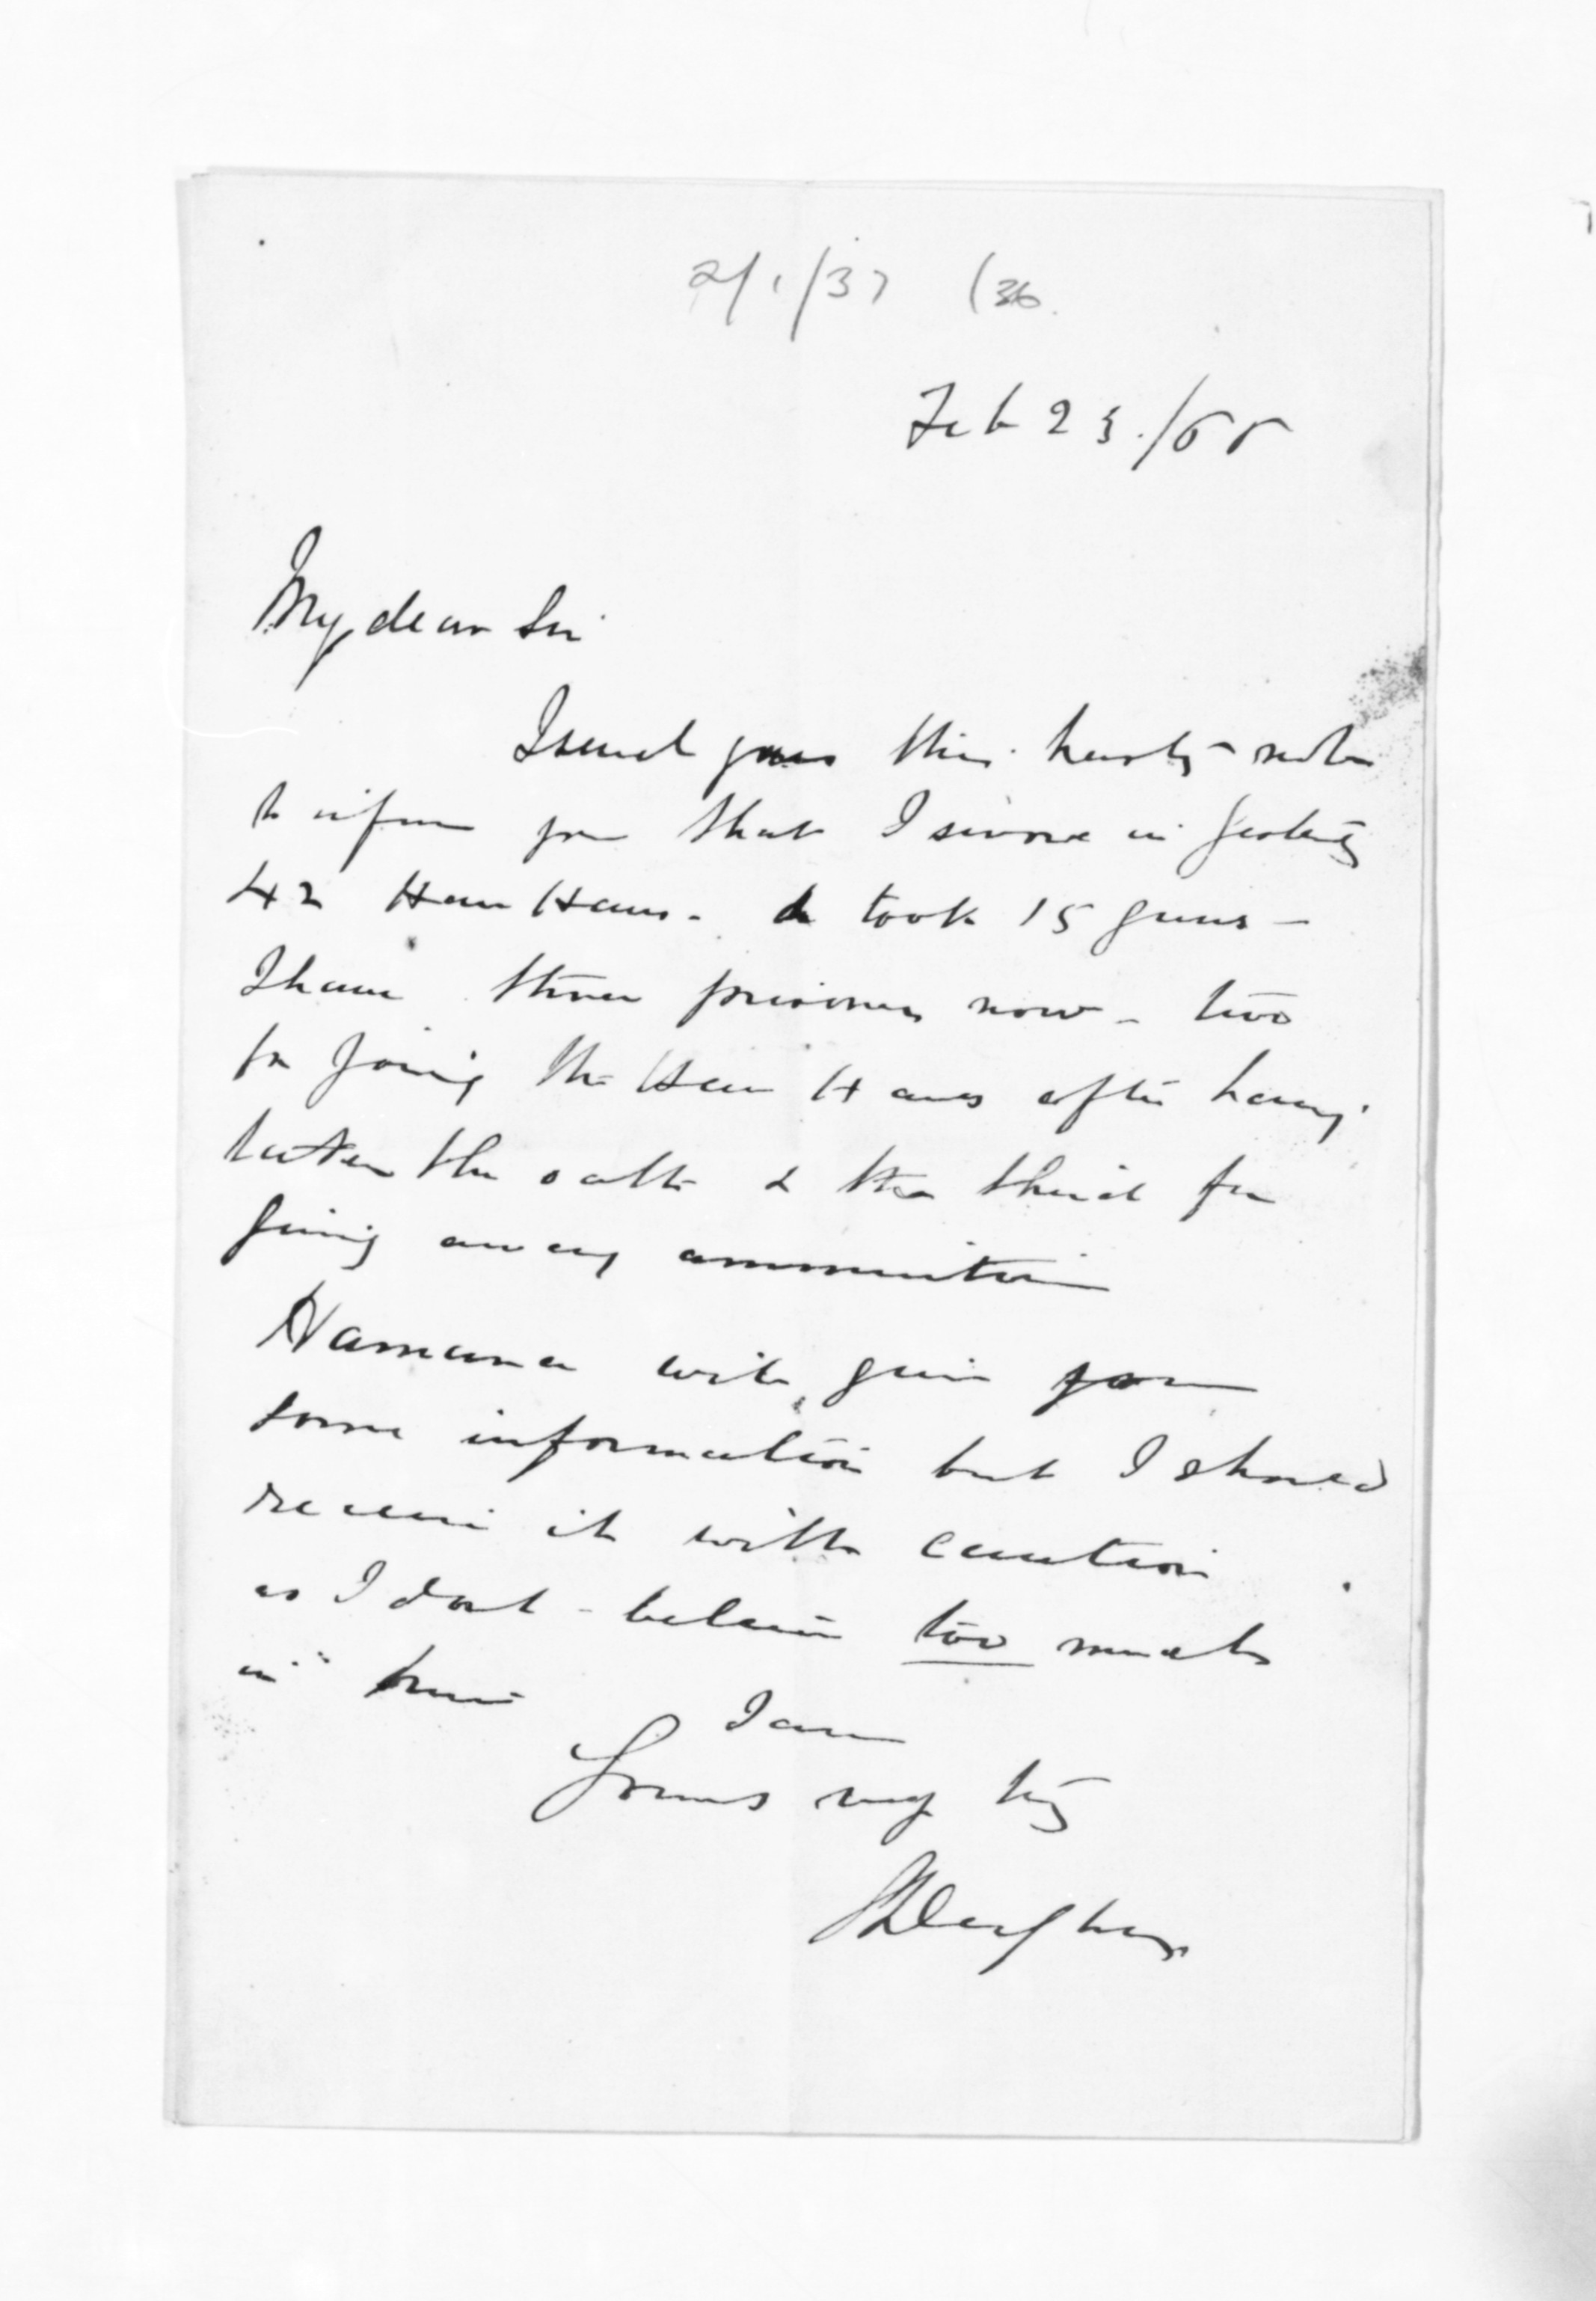 2/1/37 (36.
Feb 23./66
My dear Sir
I send you this hasty note
to inform you that I swore in yesterday
42 Hau Haus. & took 15 guns -
I have three prisoners now - two
for joing the Hau Haus after having
taken the oath & the third for
giving away ammunition
Hamana will give you
some information but I should
receive it with caution
as I dont believe too much
in him
I am
Yours very try